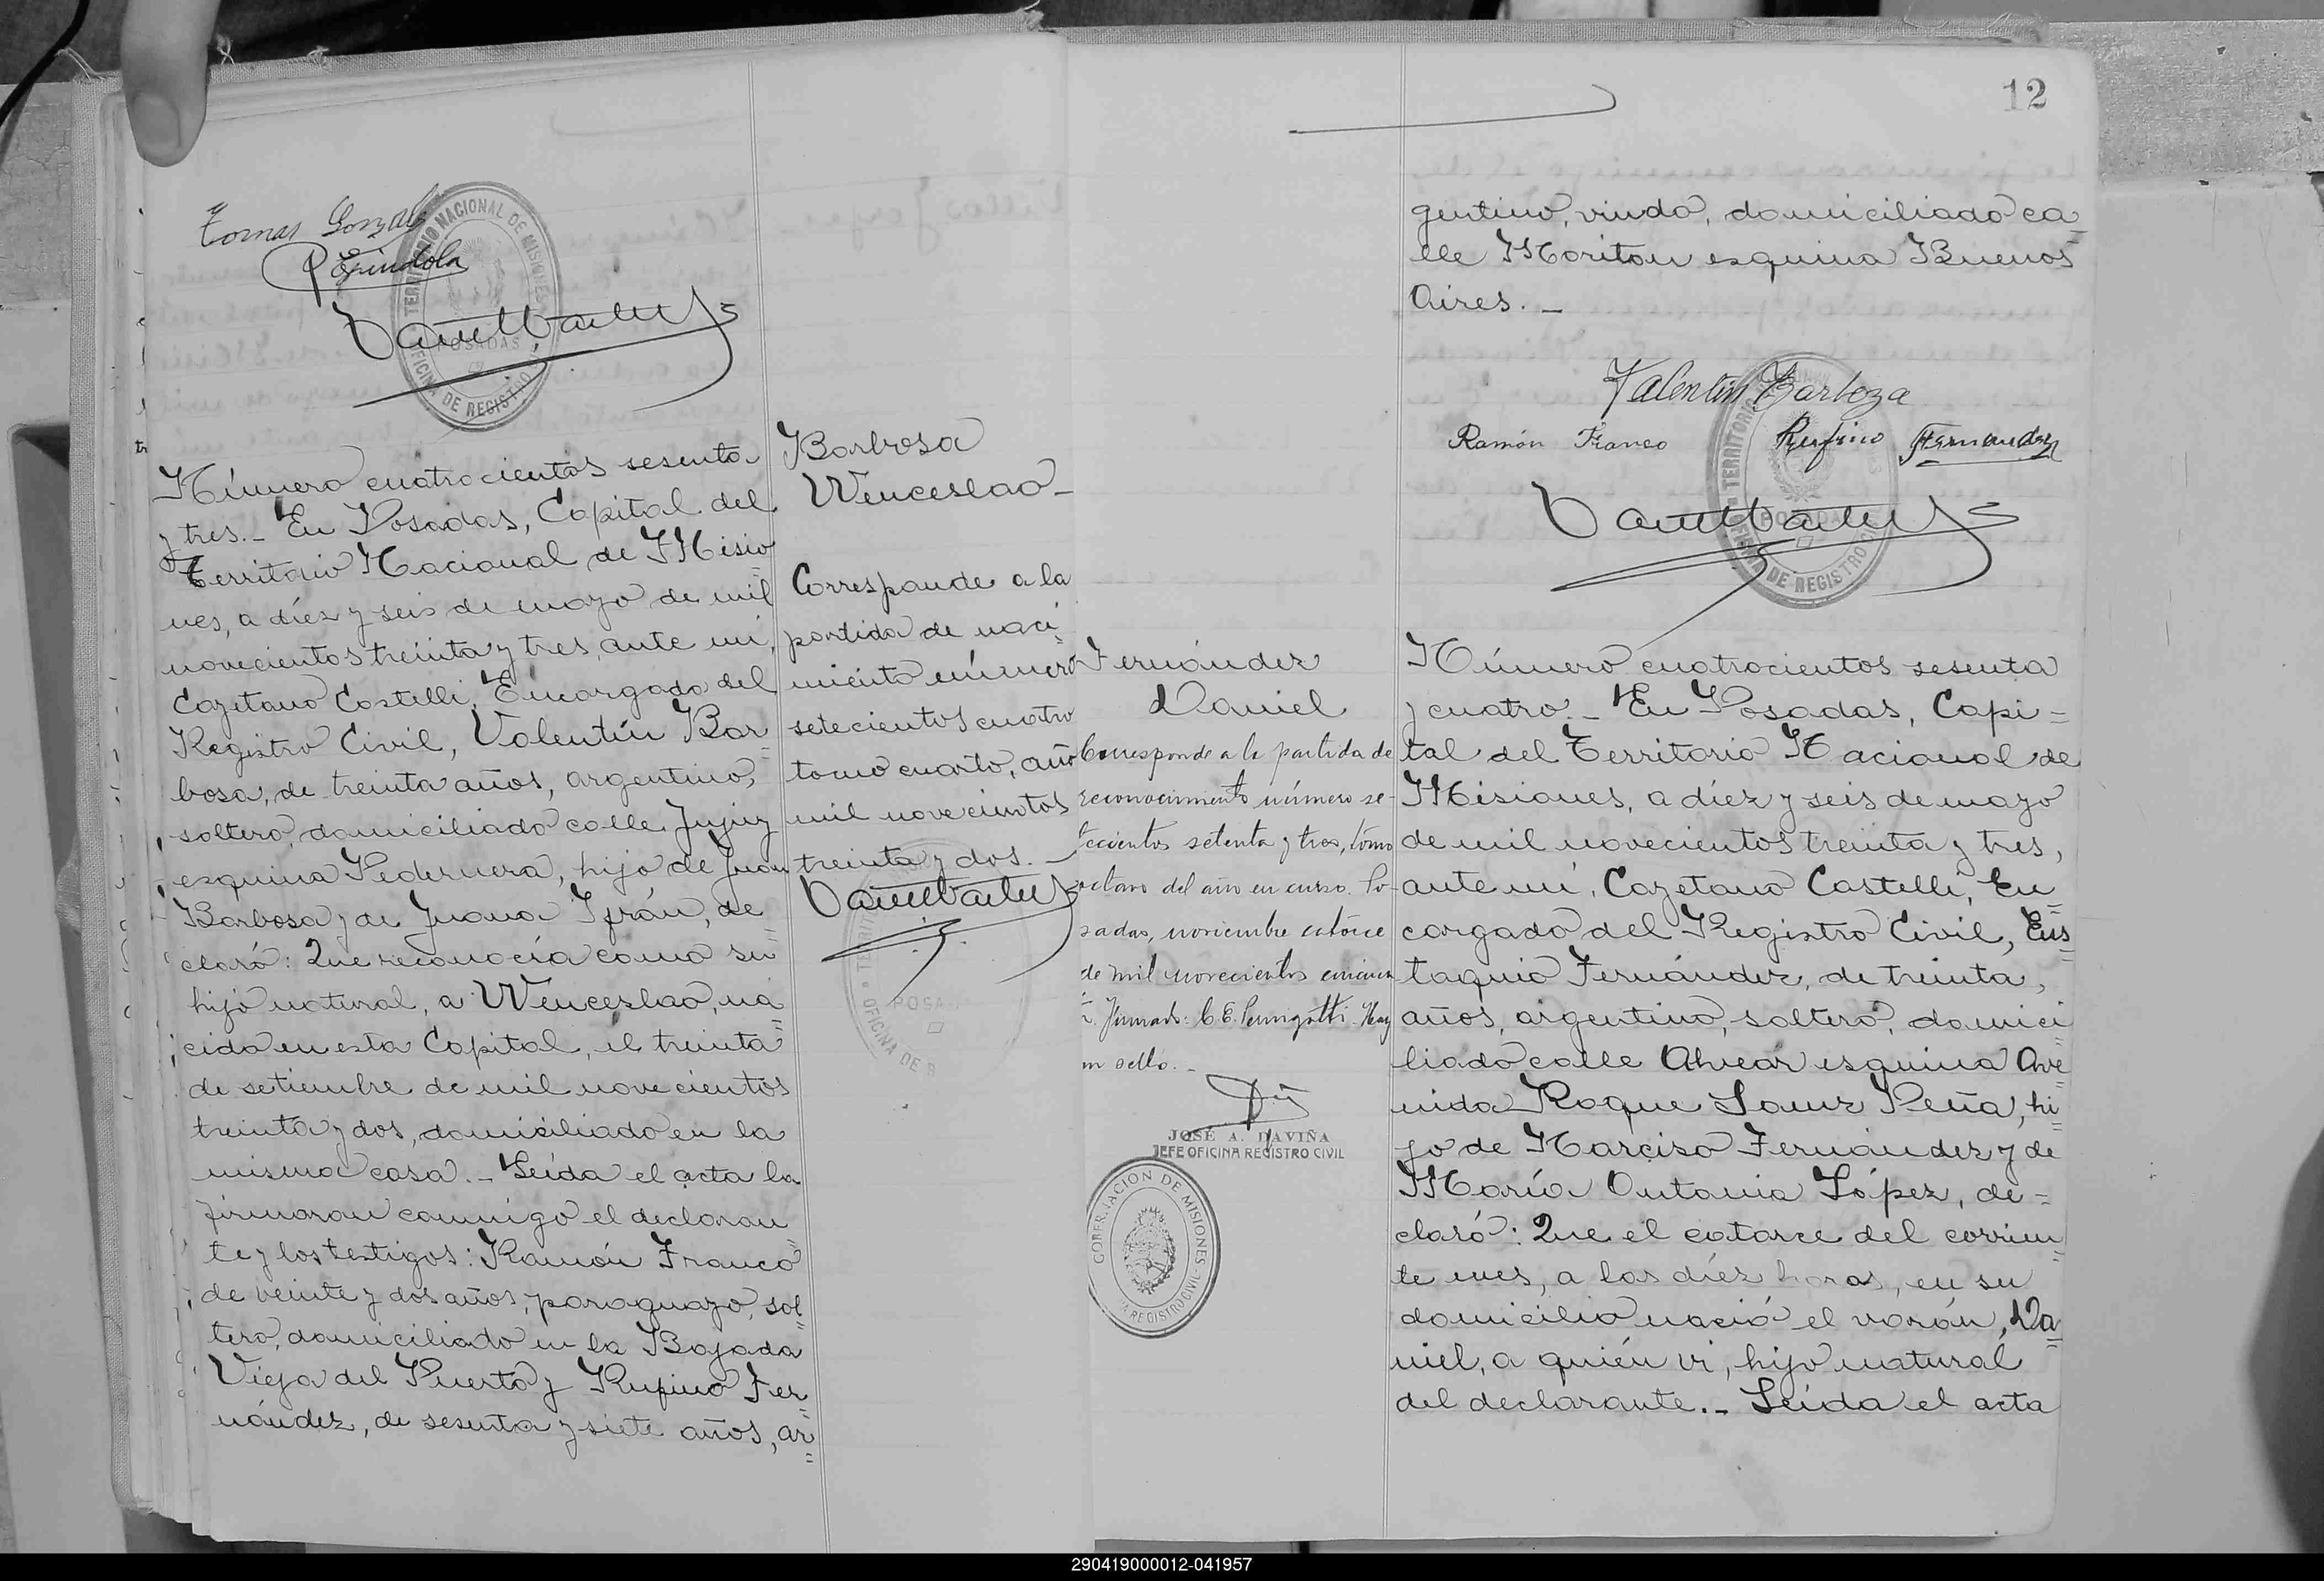 Tomas Gonzalez
P Espindola
TERRITORIO NACIONAL DE MISIONES
POSADAS
OFICINA DE REGISTRO
Número cuatrocientos sesenta
y tres.- En Posadas, Capital del
Territorio Nacional de Misio=
nes, a diéz y seis de mayo de mil
novecientos treinta y tres, ante mi,
Cayetano Castelli, Encargado del
Registro Civil, Valentín Bar=
bosa, de treinta años, argentino,
soltero, domiciliado calle Jujuy
esquina Pedernera, hijo de Juan
Barbosa y de Juana Ifrán, de=
claró: Que reconocía como su
hijo natural, a Wenceslao, na=
cido en esta Capital, el treinta
de setiembre de mil novecientos
treinta y dos, domiciliado en la
misma casa.- Leída el acta la
firmaron conmigo el declaran=
te y los testigos: Ramón Franco
de veinte y dos años, paraguayo, sol=
tero, domiciliado en la Bajada
Vieja del Puerto y Rufino Fer=
nández, de sesenta y siete años, ar=
Barbosa
Wenceslao-
Corresponde a la
partida de naci=
miento número
setecientos cuatro
tomo cuarto, año
mil novecientos
treinta y dos.-
POSA
OFICINA DE R
12
gentino, viudo, domiciliado ca=
lle Moritan esquina Buenos
Aires.-
Valentin Barboza
Ramón Franco Rufino Fernandez
TERRITORIO
POSADAS
OFICINA DE REGISTRO CIVIL
Fernández
Daniel
Corresponde a la partida de
reconocimiento número se-
tecientos setenta y tres, tomo
octavo del año en curso. Po-
sadas, noviembre catorce
de mil novecientos cincuen
Firmado: C. E. Hay
un sello.-
JOSÉ A. DAVIÑA
JEFE OFICINA REGISTRO CIVIL
GOBERNACION DE MISIONES
REGISTRO CIVIL
Número cuatrocientos sesenta
y cuatro.- En Posadas, Capi=
tal del Territorio Nacional de
Misiones, a diéz y seis de mayo
de mil novecientos treinta y tres,
ante mi, Cayetano Castelli, En=
cargado del Registro Civil, Eus=
taquio Fernández, de treinta
años, argentino, soltero, domici=
liado calle Alvear esquina Ave=
nida Roque Saenz Peña, hi=
jo de Narciso Fernández y de
María Antonia López, de=
claró: Que el catorce del corrien=
te mes, a las diéz horas, en su
domicilio nació el varón, Da=
niel, a quién vi, hijo natural
del declarante.- Leída el acta
290419000012-041957